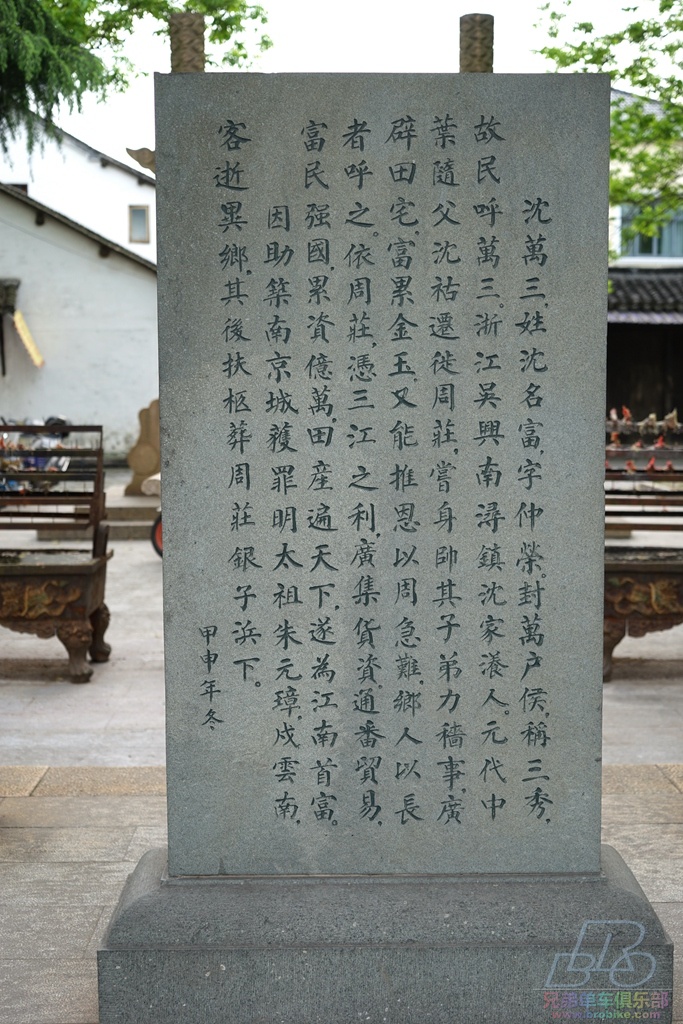 沈萬三，姓沈名富，字仲榮。封萬户侯，稱三秀，
故民呼萬三。浙江吳興南潯鎮沈家漾人。元代中
葉隨父沈祜遷徙周莊，嘗身帥其子弟力穡事，廣
辟田宅，富累金玉，又能推恩以周急難，鄉人以長
者呼之。依周莊，憑三江之利，廣集貨資，通番貿易，
富民强國，累資億萬，田産遍天下，遂為江南首富。
因助築南京城，獲罪明太祖朱元璋，戍雲南，
客逝異鄉，其後扶柩葬周莊銀子浜下。
甲申年冬
BRO
兄弟单车俱乐部
www.brobike.com